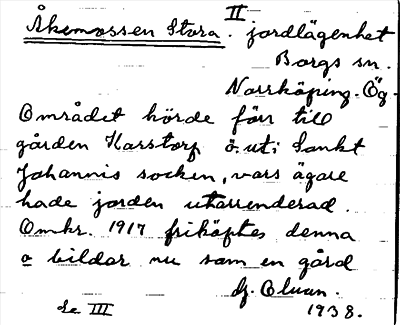 II
Åkemossen Stora. jordlägenhet
Borgs sn.
Norrköping. Ög.
Området hörde förr till
gården Karstorp o. ut i Sankt
Johannis socken, vars ägare
hade jorden utarrenderad.
Omkr. 1917 friköptes denna
o bildar nu som en gård
se III
1938.